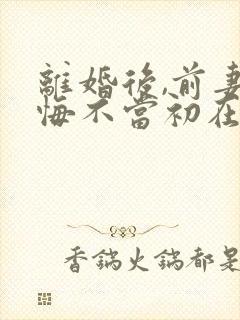 離婚後,前妻
悔不當初在
香鍋火鍋都是